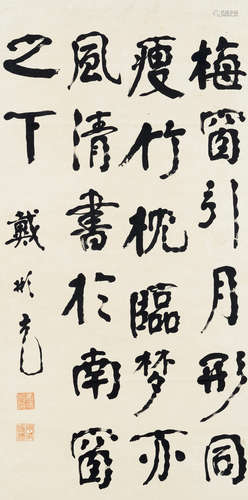 梅窗引月形同
瘦竹枕臨梦亦
風清書於南窗
之下 戴彬元